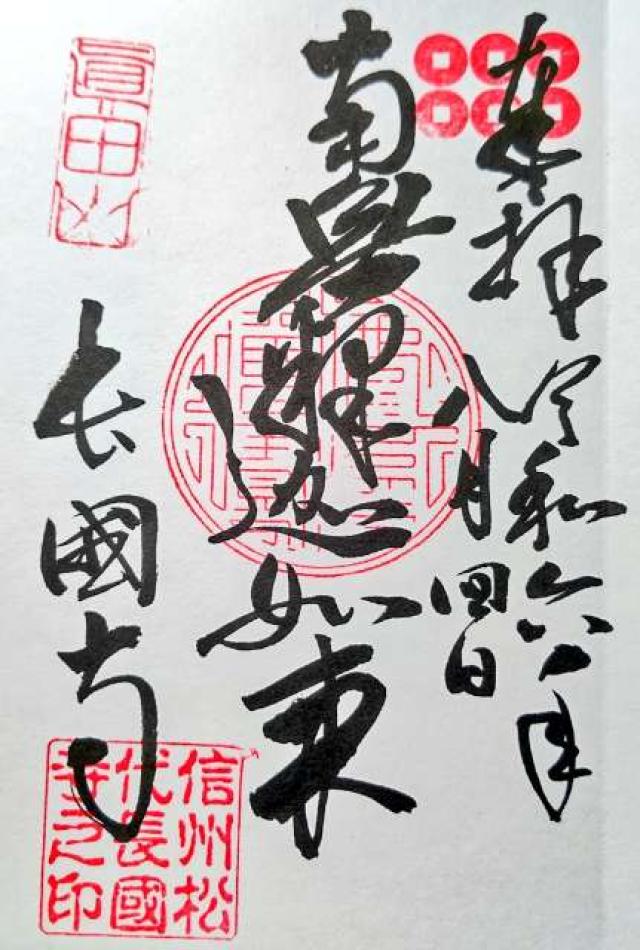 奉拝
令和六年
八月四日
南無釋迦如来
長國寺
眞田山
信州松
代長國
寺之印